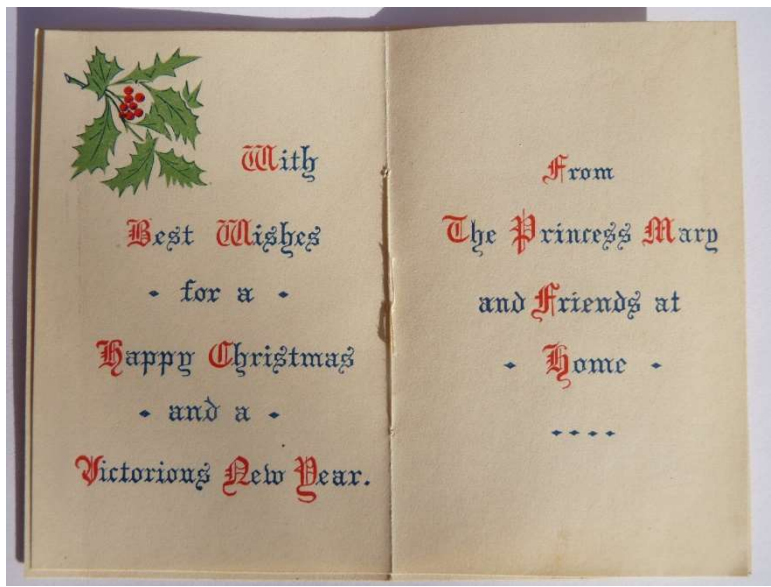 With
Best Wishes
for a
Happy Christmas
and a
Victorious New Year.
From
The Princess Mary
and Friends at
Home